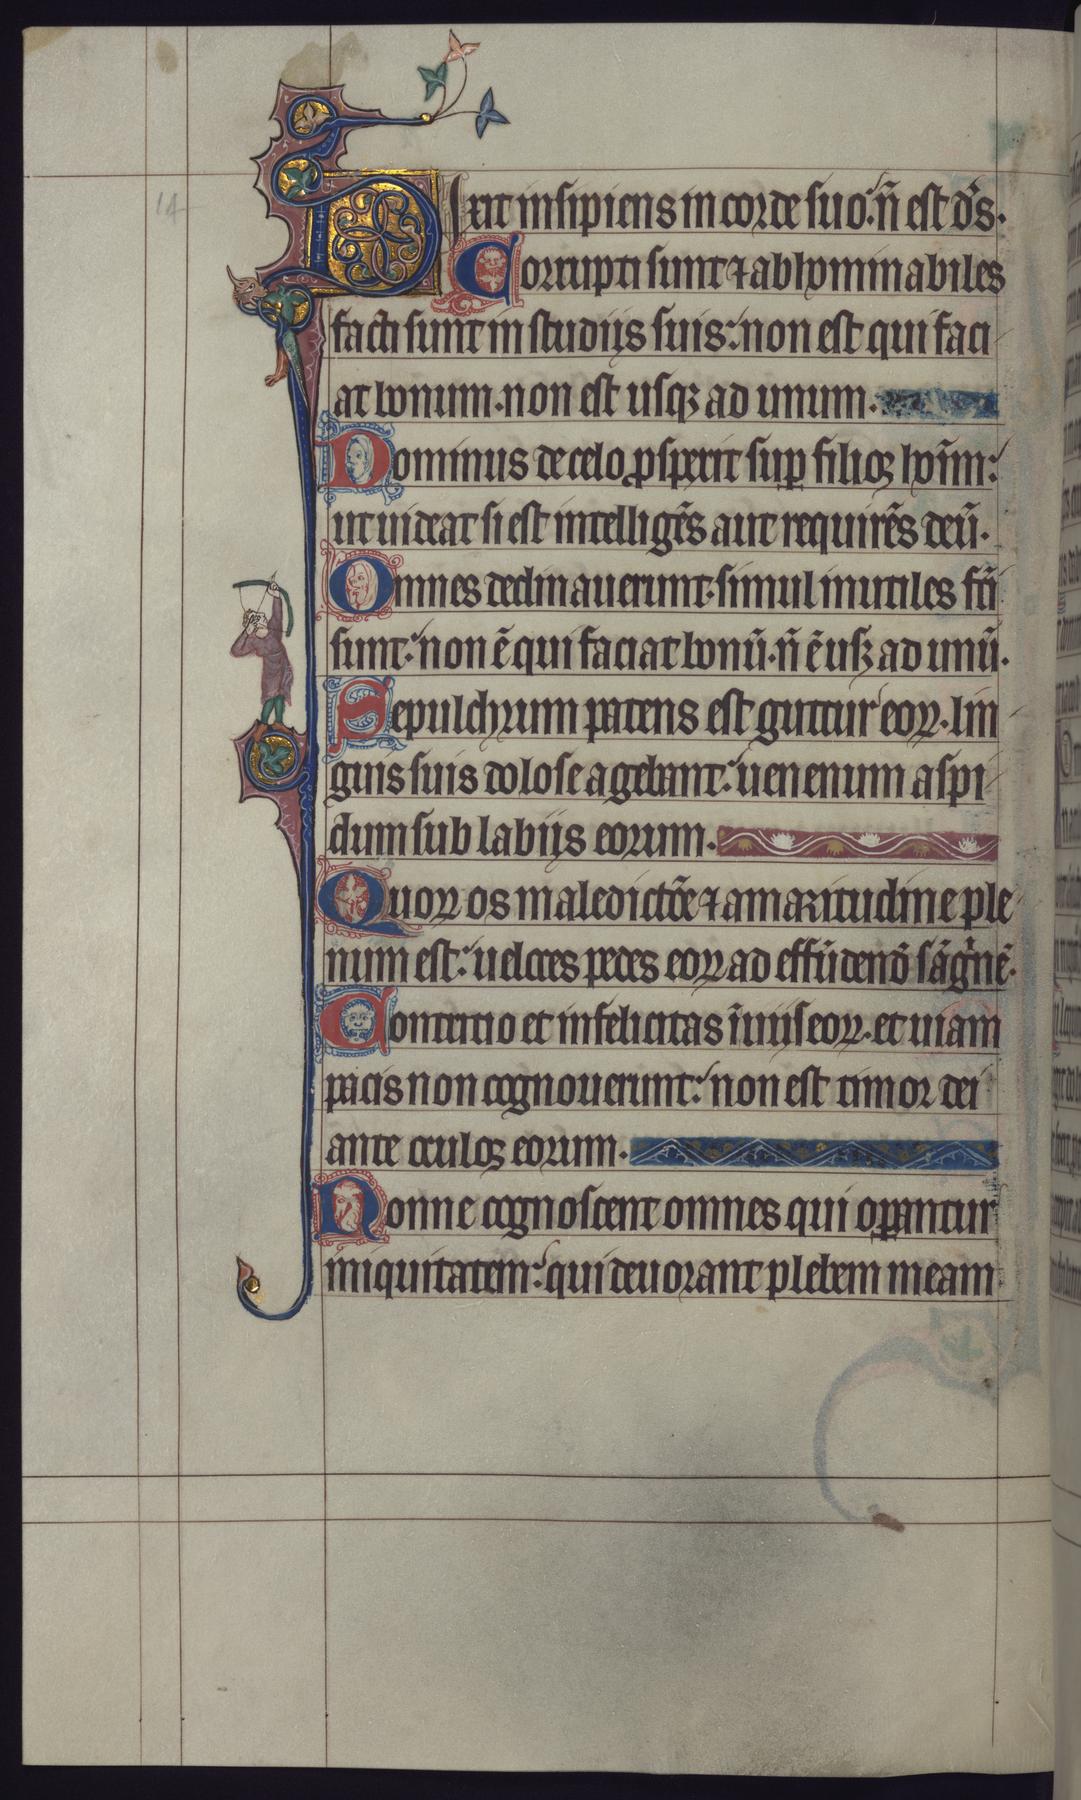 14
Dixit insipiens in corde suo: n̄ est d̄s.
Corrupti sunt ⁊ abhominabiles
facti sunt in studijs suis: non est qui faci
at bonum. non est usqꝫ ad unum.
Dominus de celo ꝓspexit suꝑ filios hom̄:
ut uideat si est intelligēs aut requirēs deū.
Omnes declinauerunt. simul inutiles fc̄i
sunt: non ē qui faciat bonū. n̄ ē usqꝫ ad unū.
Sepulchrum patens est guttur eoꝝ. lin
guis suis dolose agebant: uenenum aspi
dum sub labijs eorum.
Quoꝝ os maledictōe ⁊ amaritudine ple
num est: ueloces pedes eoꝝ ad effūdendū sāguinē.
Contritio et infelicitas ī uijs eoꝝ. et uiam
pacis non cognouerunt: non est timor dei
ante oculos eorum.
Nonne cognoscent omnes qui oꝑantur
iniquitatem: qui deuorant plebem meam